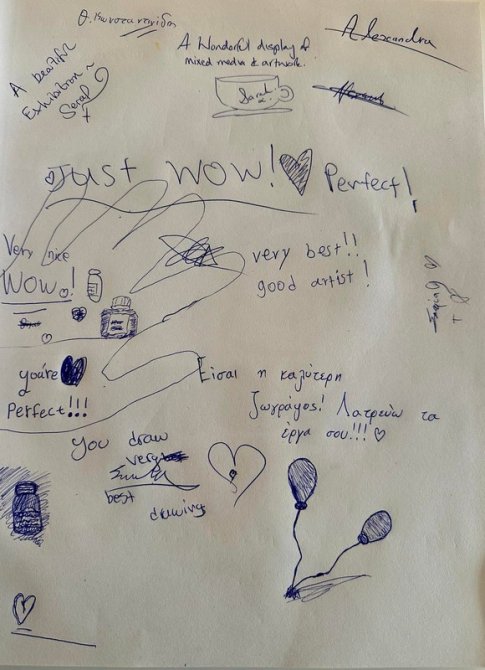 Θ. Κωνσταντινίδη
A Wonderful display of
mixed media & artwork.
Sarah
Alexandra
A beautiful
Exhibition ~
Serap
Just WOW! Perfect!
Very nice
WOW!
very best!!
good artist!
you're
perfect!!!
Είσαι η καλύτερη
ζωγράφος! Λατρεύω τα
έργα σου!!!
you draw
very
best
drawing